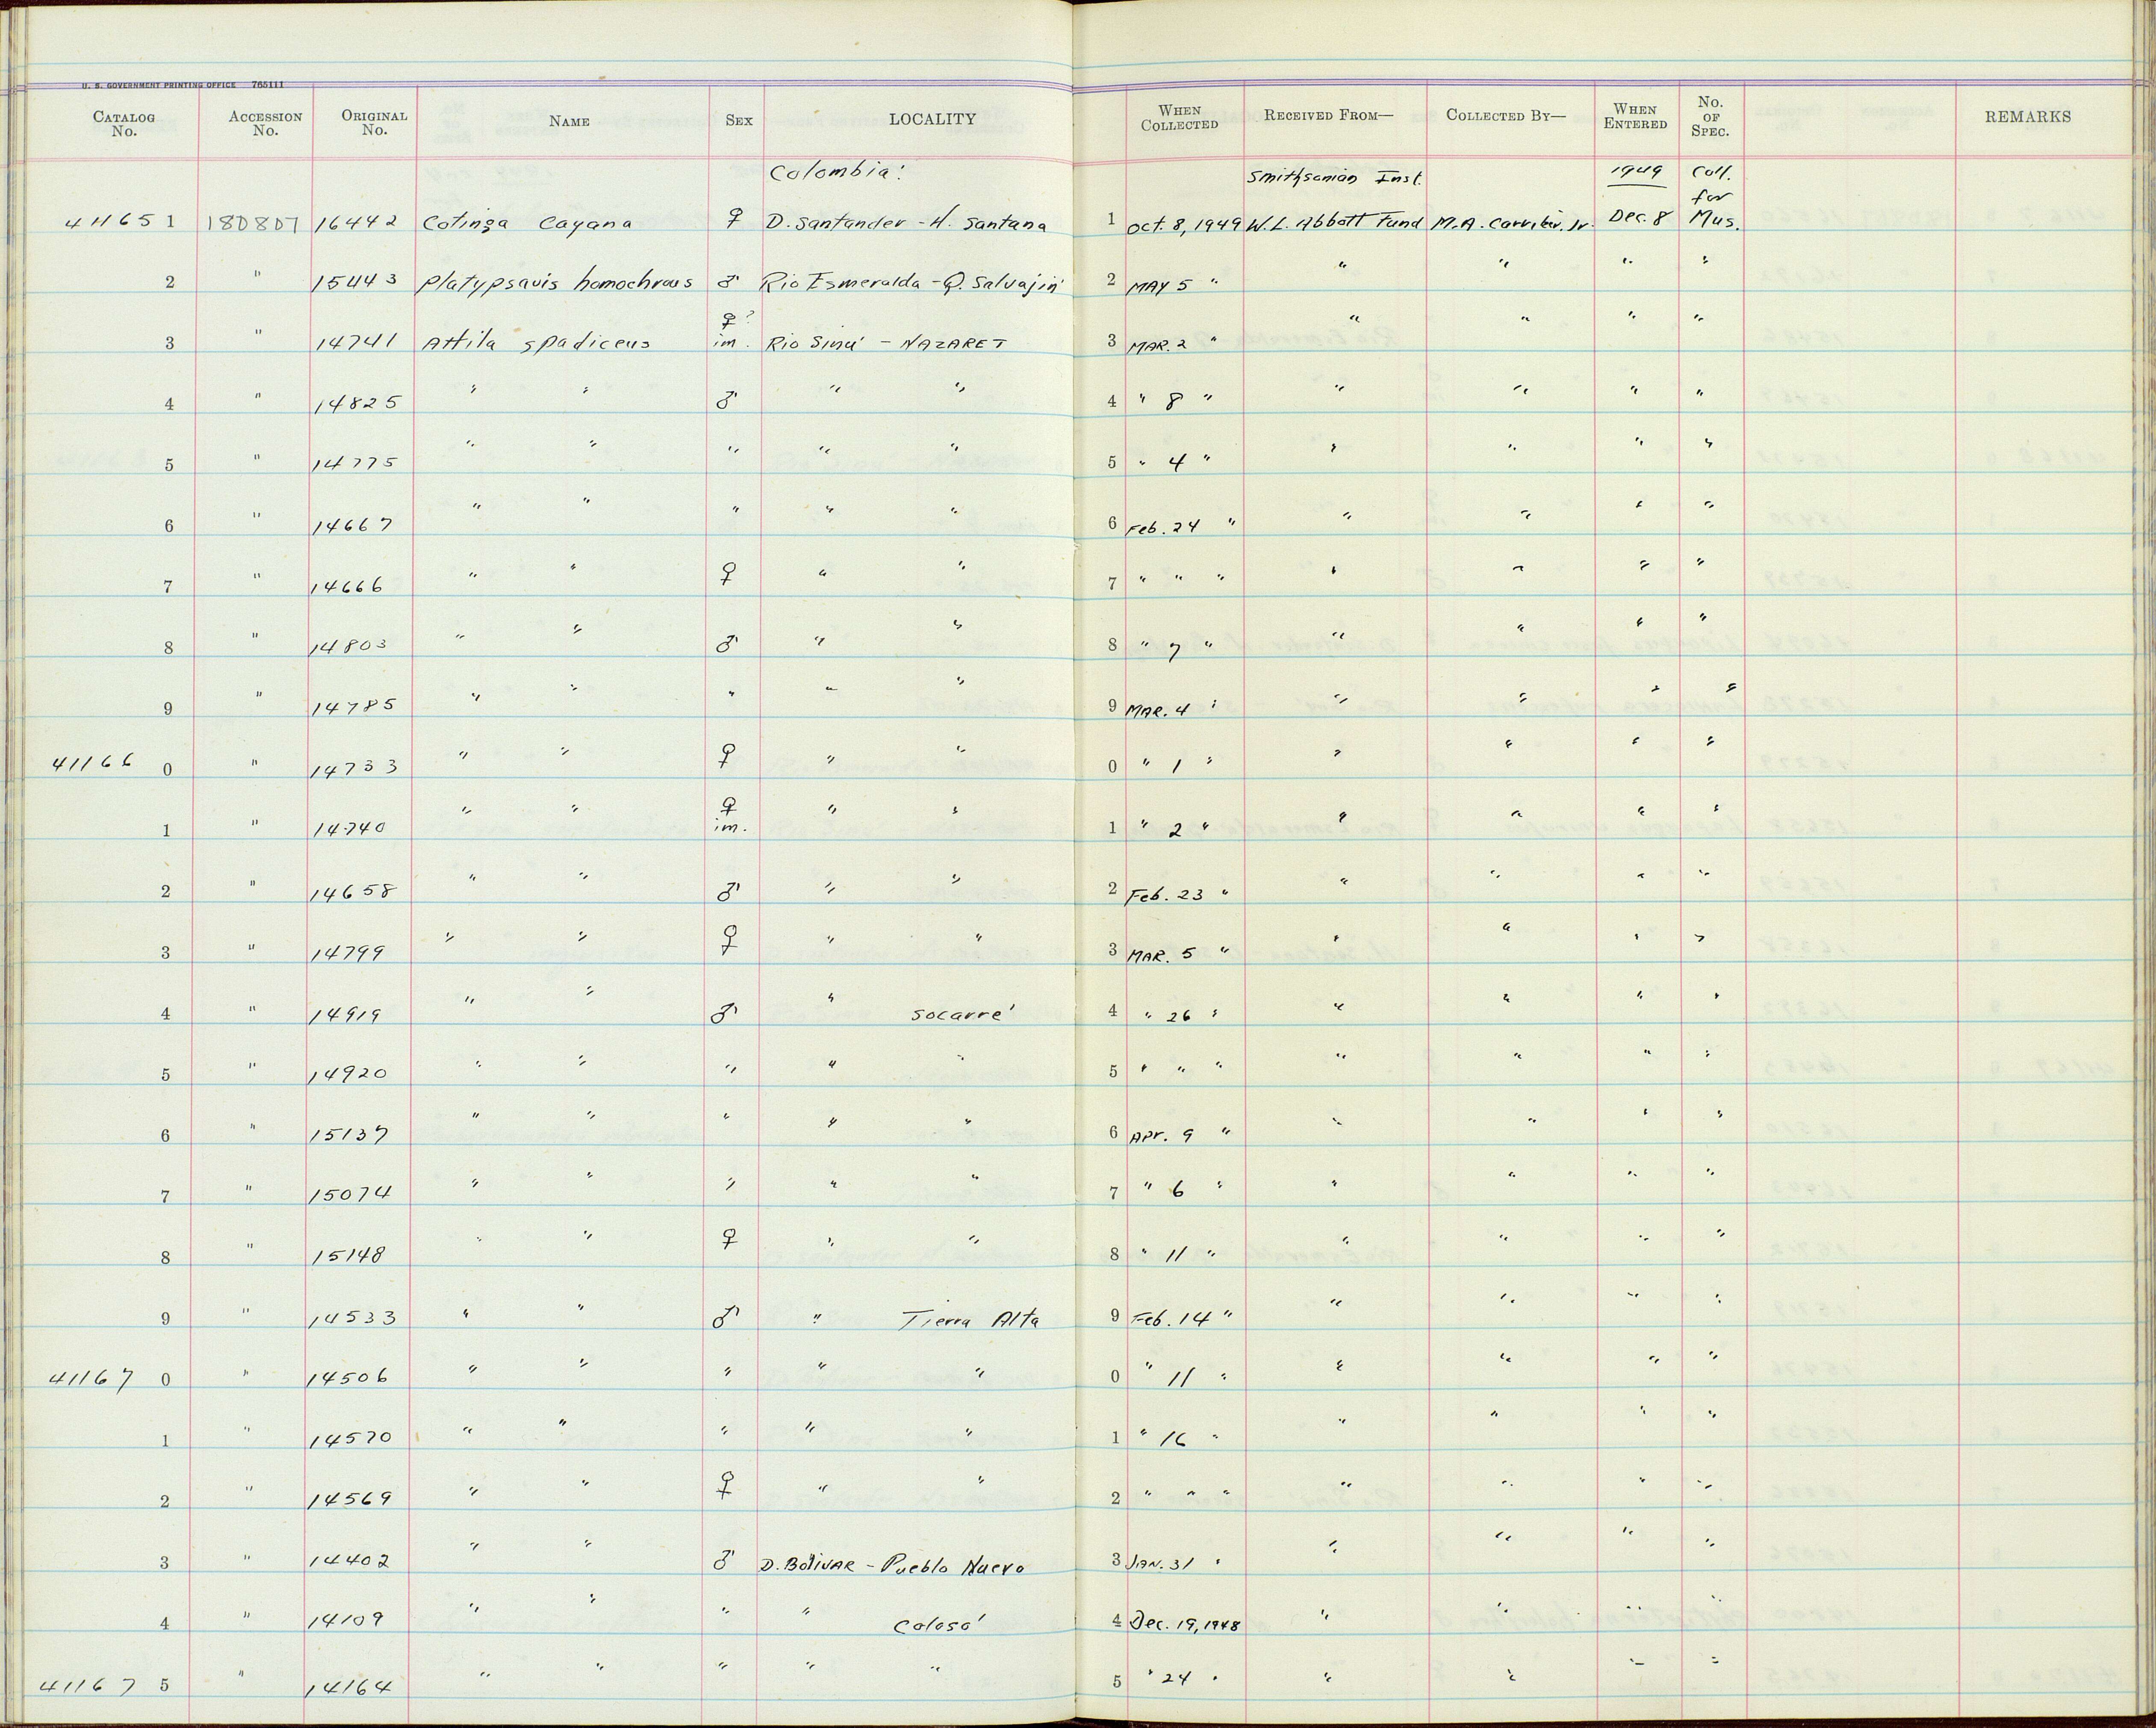 U. S. GOVERNMENT PRINTING OFFICE 765111
CATALOG No. ACCESSION No. ORIGINAL No. NAME SEX LOCALITY WHEN COLLECTED RECEIVED FROM— COLLECTED BY— WHEN ENTERED No. OF SPEC. REMARKS
Colombia: Smithsonian Inst. 1949 Coll. for
411651 180807 16442 Cotinga Cayana ♀ D. Santander - H. Santana 1 Oct. 8, 1949 W.L. Abbott Fund M.A. Carriker. Jr. Dec. 8 Mus.
2 " 15443 Platypsauis homochrous ♂ Rio Esmeralda - Q. Salvajin 2 MAY 5 " " " " "
3 " 14741 Attila spadiceus ♀? im. Rio Sinú - NAZARET 3 MAR. 2 " " " " "
4 " 14825 " " ♂ " " 4 " 8 " " " " "
5 " 14775 " " " " " 5 " 4 " " " " "
6 " 14667 " " " " " 6 Feb. 24 " " " " "
7 " 14666 " " ♀ " " 7 " " " " " " "
8 " 14803 " " ♂ " " 8 " 7 " " " " "
9 " 14785 " " " " " 9 MAR. 4 " " " " "
41166 0 " 14733 " " ♀ " " 0 " 1 " " " " "
1 " 14740 " " ♀ im. " " 1 " 2 " " " " "
2 " 14658 " " ♂ " " 2 Feb. 23 " " " " "
3 " 14799 " " ♀ " " 3 MAR. 5 " " " " "
4 " 14919 " " ♂ " Socarré 4 " 26 " " " " "
5 " 14920 " " " " " 5 " " " " " " "
6 " 15137 " " " " " 6 APr. 9 " " " " "
7 " 15074 " " " " " 7 " 6 " " " " "
8 " 15148 " " ♀ " " 8 " 11 " " " " "
9 " 14533 " " ♂ " Tierra Alta 9 Feb. 14 " " " " "
41167 0 " 14506 " " " " " 0 " 11 " " " " "
1 " 14570 " " " " " 1 " 16 " " " " "
2 " 14569 " " ♀ " " 2 " " " " " " "
3 " 14402 " " ♂ D. BOlIVAR - Pueblo Nuevo 3 JAN. 31 " " " " "
4 " 14109 " " " " Colosó 4 Dec. 19, 1948 " " " "
41167 5 " 14164 " " " " " 5 " 24 " " " " "